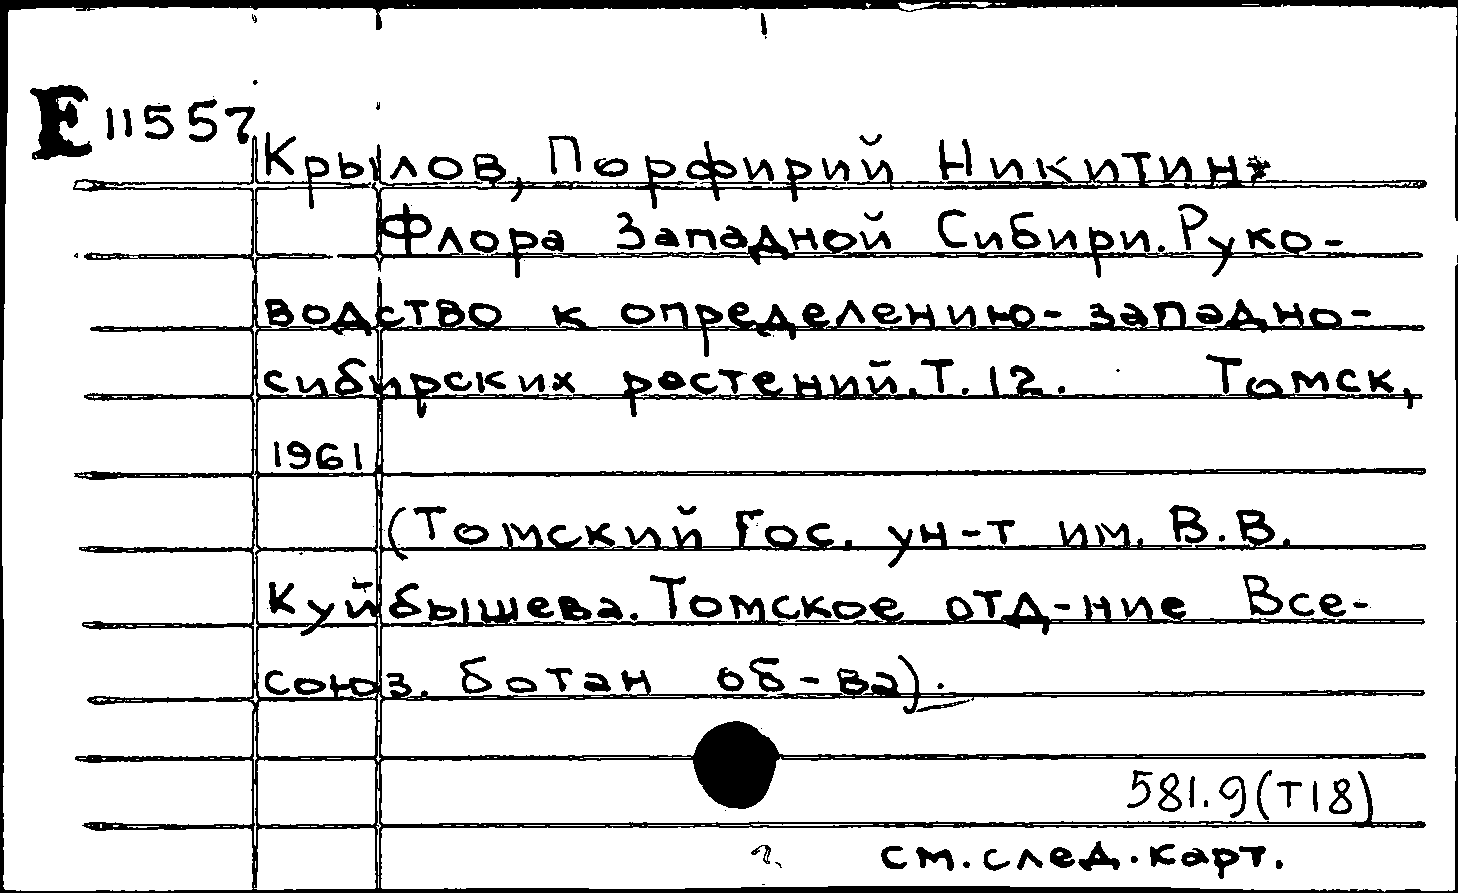 E 11557
Крылов, Порфирий Никитин*
Флора Западной Сибири. Руко-
водство к определению- западно-
сибирских растений. Т. 12. Томск,
1961
(Томский Гос. ун-т им. В. В.
Куйбышева. Томское отд-ние Все-
союз. ботан об-ва).
581.9(Т18)
см. след. карт.